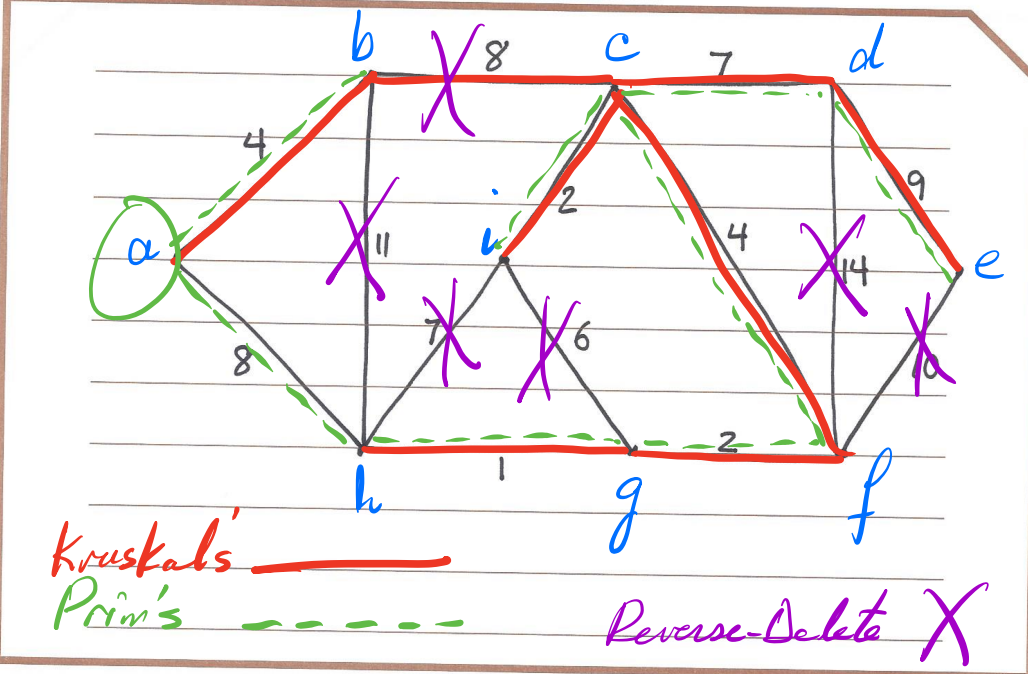 b 8 c 7 d
4
9
2
a 11 i 4 14 e
7 6
8 10
2
1
h g f
Kruskal's
Prim's Reverse-Delete